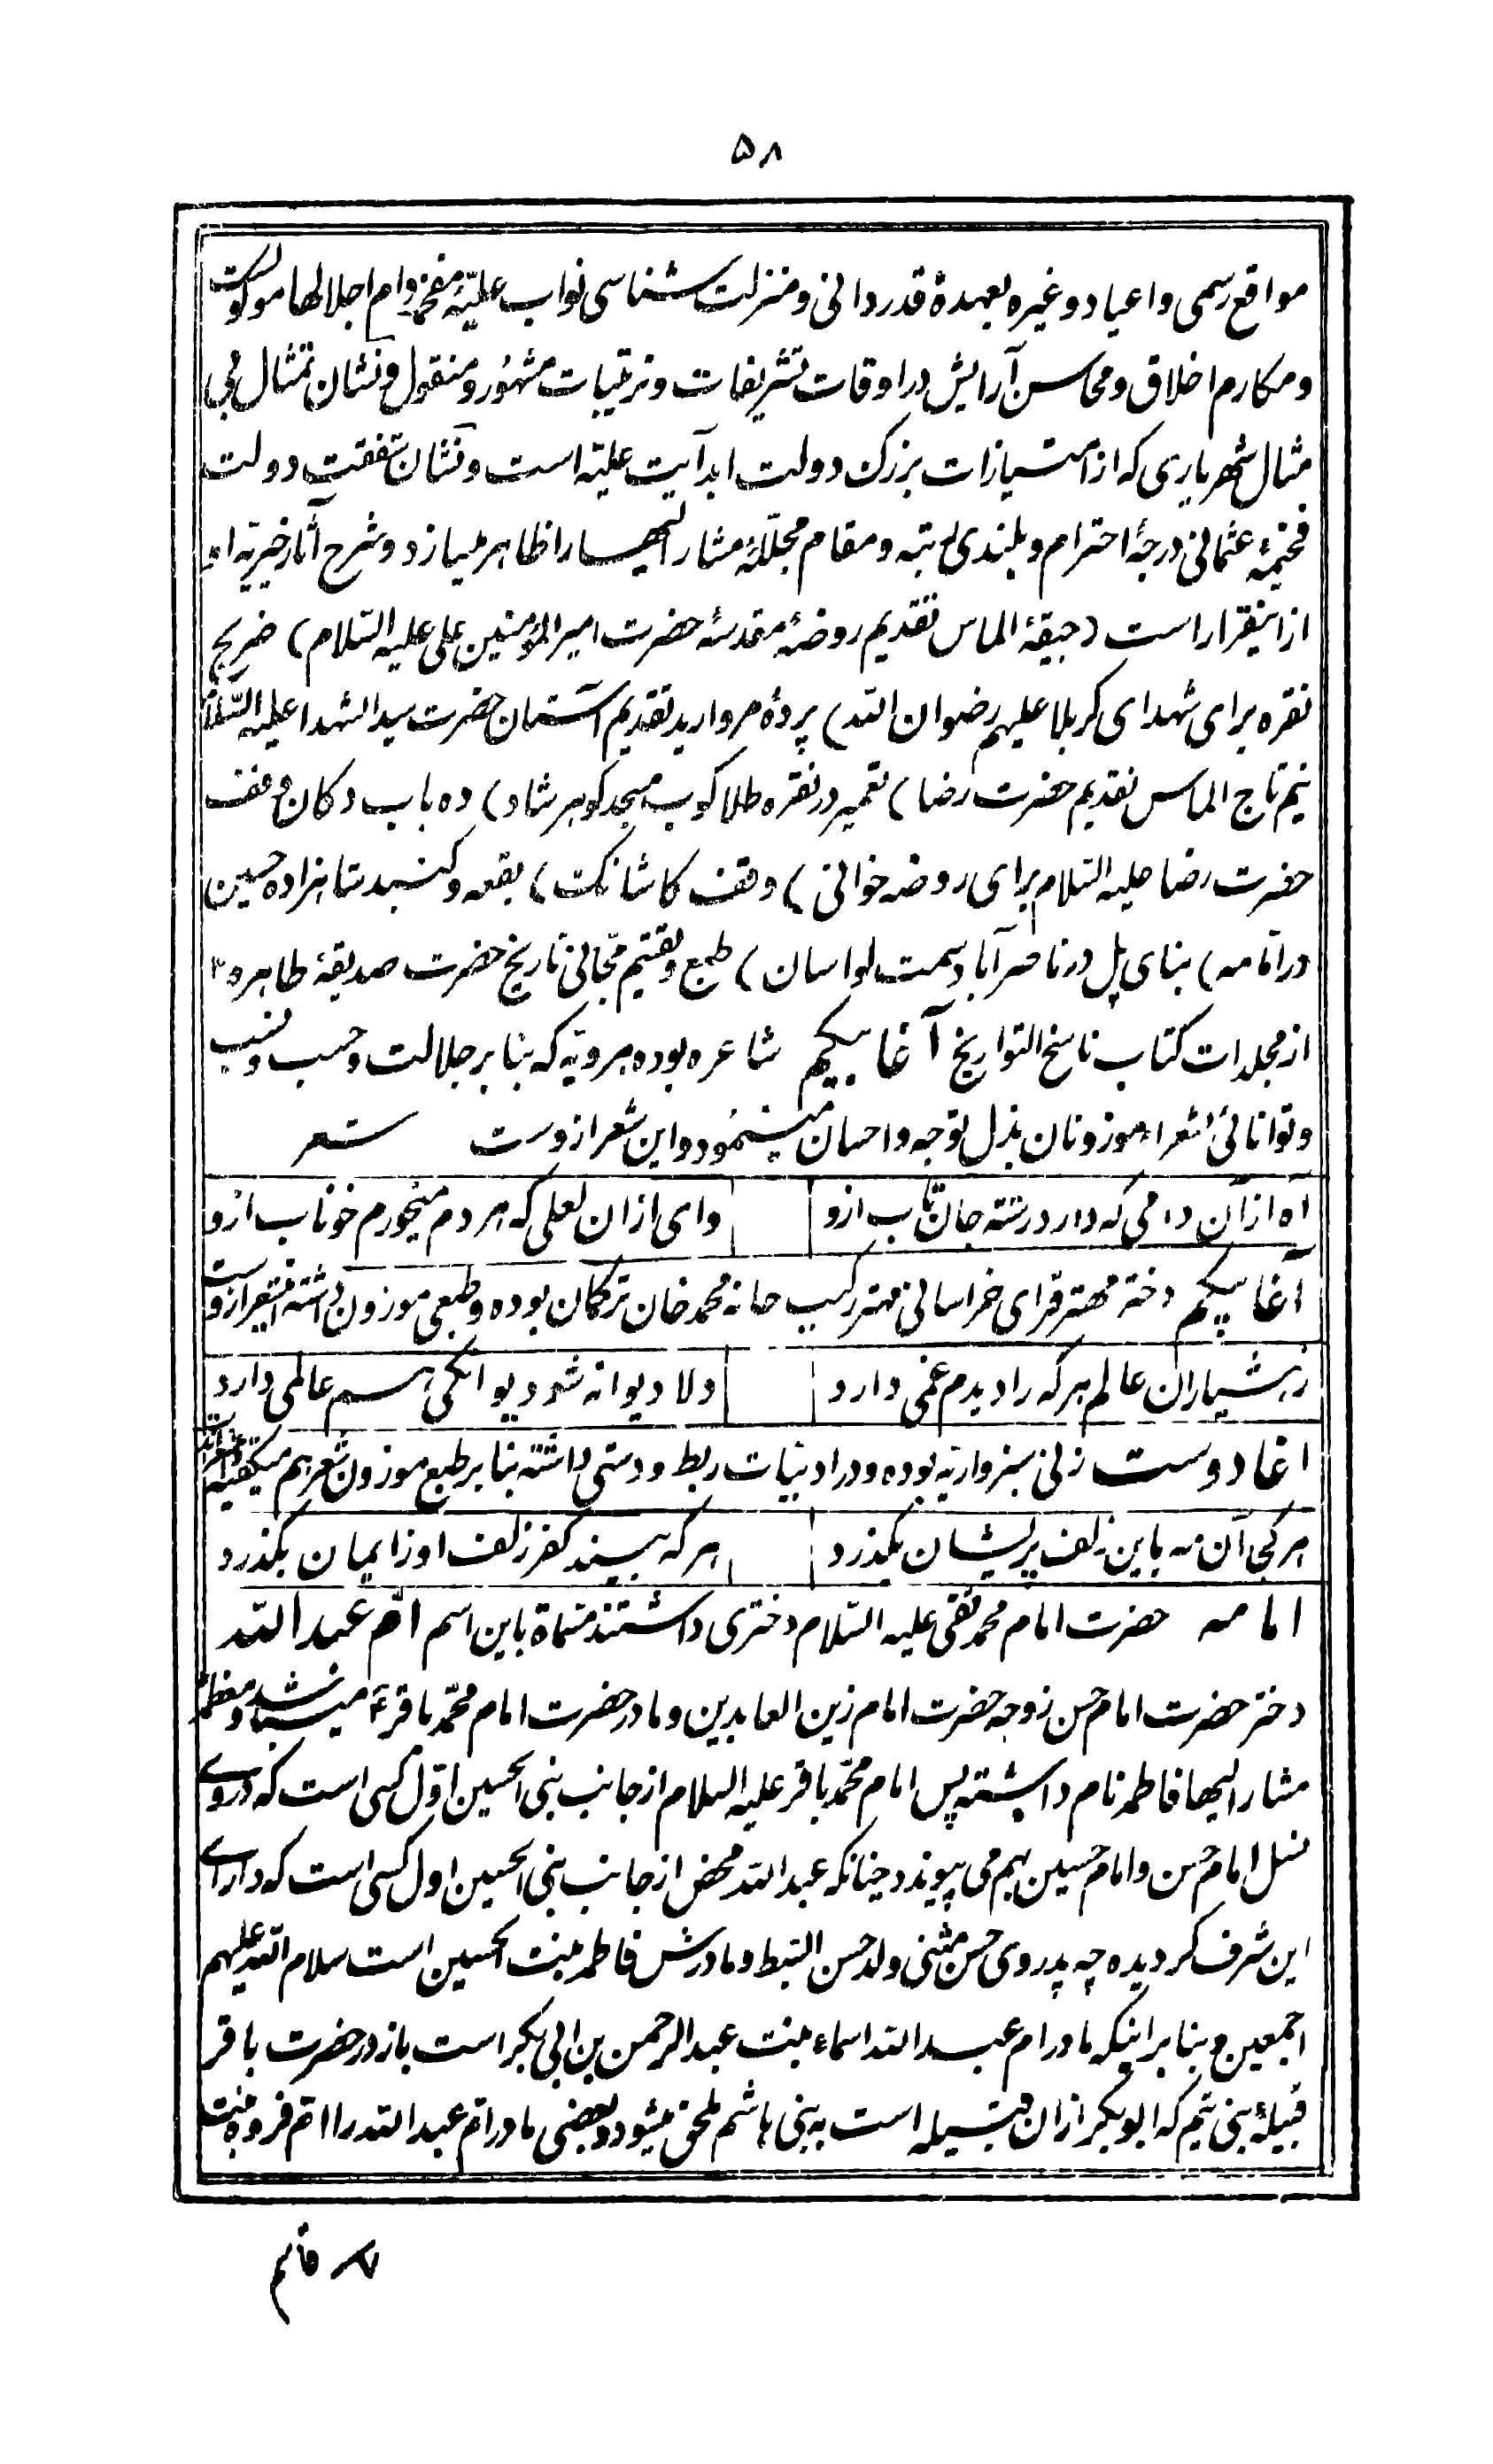 ۵۸
مواقع رسمی و اعیاد و غیره بعهدهٔ قدردانی و منزلت شناسی نواب علیّهٔ مفخمه دام اجلالها موکول است
و مکارم اخلاق و محاسن آرایش در اوقات تشریفات و ترتیبات مشهُور و منقول و نشان تمثال بی
مثال شهریاری که از امتیازات بزرک دولت ابد آیت علیّه است و نشان شفقت دولت
فخیمهٔ عثمانی درجهٔ احترام و بلندی رتبه و مقام مجلّلهٔ مشار الیها را ظاهر میسازد و شرح آثار خیریّه او
از اینقرار است (جیقهٔ الماس تقدیم روضهٔ مقدسهٔ حضرت امیرالمؤمنین علی علیه السّلام) ضریح
نقره برای شهدای کربلا علیهم رضوان الله) پردهٔ مروارید تقدیم آستان حضرت سید الشهدا علیه السّلام
نیم تاج الماس تقدیم حضرت رضا) تعمیر در نقره طلا کوب مسجد کوهر شاد) ده باب دکان وقف
حضرت رضا علیه السّلام برای روضه خوانی) وقف کاشانک) بقعه و کنبد شاهزاده حسین
در امامه) بنای پل در ناصر آباد سمت لواسان) طبع و تقسیم مجّانی تاریخ حضرت صدیقهٔ طاهره
از مجلدات کتاب ناسخ التواریخ آغا بیکم شاعره بوده هرویّه که بنا بر جلالت و حسب و نسب
و توانائی بشعراء موزونان بذل توجه و احسان مینمُود و این شعر ازوست شعر
اه از آن دامی که دارد رشته جان تاب ازو وای از ان لعلی که هر دم میخورم خوناب ازو
آغا بیکم دختر مهتر قرای خراسانی مهتر رکیب خانه محمد خان ترکمان بوده و طبعی موزون داشته اینشعر ازوست
ز هشیاران عالم هر که را دیدم غمی دارد دلا دیوانه شو دیوانکی هم عالمی دارد
اغا دوست زنی سبزواریّه بوده و در ادبیّات ربط و دستی داشته بنا بر طبع موزون شعر هم میکفته
هر کجی آن مه باین زلف پریشان بکذرد هر که بیند کفر زلف او ز ایمان بکذرد
امامه حضرت امام محمد تقی علیه السّلام دختری داشتند مسّماة باین اسم امّ عبد الله
دختر حضرت امام حسن زوجه حضرت امام زین العابدین و مادر حضرت امام محمّد باقر ع میباشد و معظمه
مشار الیها فاطمه نام داشته پس امام محمّد باقر علیه السلام از جانب بنی الحسین اوّل کسی است که در وی
نسل امام حسن و امام حسین بهم می پیوندد چنانکه عبد الله محض از جانب بنی الحسین اول کسی است که دارای
این شرف کردیده چه پدر وی حسن مثنی ولد حسن السّبط و مادرش فاطمه بنت الحسین است سلام الله علیهم
اجمعین و بنا بر اینکه مادر ام عبد الله اسماء بنت عبد الرحمن بن ابی بکر است باز در حضرت باقر
قبیلهٔ بنی تیم که ابو بکر از ان قبیله است به بنی هاشم ملحق میشود و بعضی مادر امّ عبد الله را امّ فروه بنت
قاسم